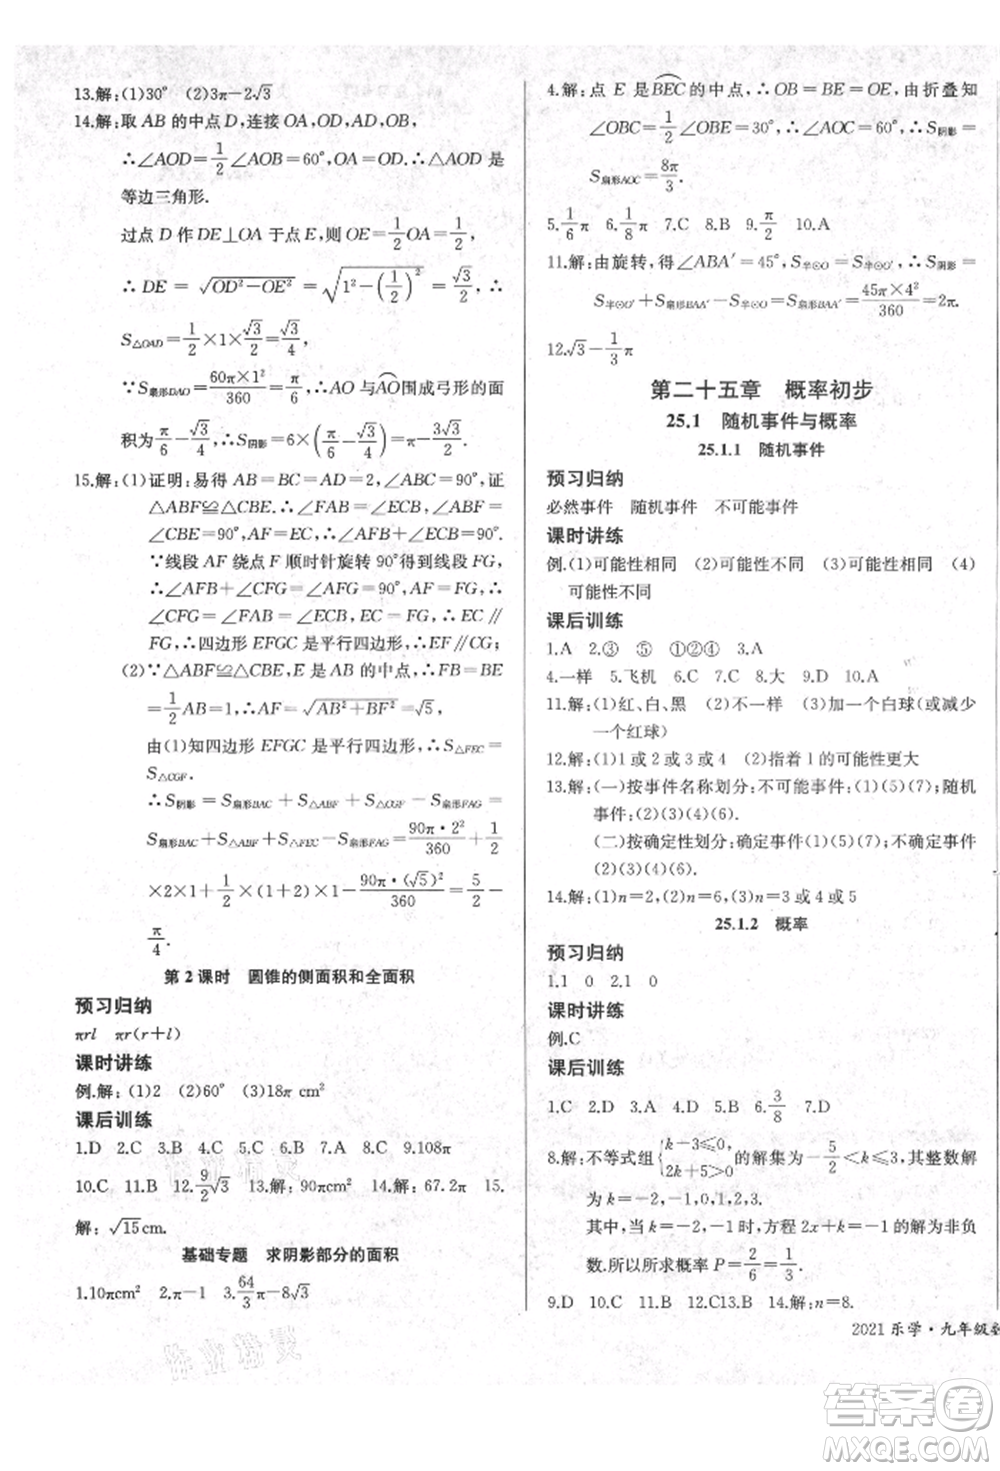 13.解:(1)30° (2)3π-2√3
14.解:取 AB 的中点 D,连接 OA,OD,AD,OB,
∴∠AOD=1/2∠AOB=60°,∴△AOD 是
等边三角形.
过点 D 作 DE⊥OA 于点 E,则 OE=1/2OA=1/2,
∴ DE = √(OD²-OE²) = √(1²-(1/2)²) = √3/2, ∴
S△OAD=1/2×1×√3/2=√3/4,
∵S扇形DAO=60π×1²/360=π/6,∴AO 与AO围成弓形的面
积为π/6-√3/4,∴S阴影=6×(π/6-√3/4)=π-3√3/2.
15.解:(1)证明:易得 AB=BC=AD=2,∠ABC=90°,证
△ABF≌△CBE.∴∠FAB=∠ECB,∠ABF=
∠CBE=90°,AF=EC,∴∠AFB+∠FAB=90°.
∵线段 AF 绕点 F 顺时针旋转 90°得到线段 FG,
∴∠AFB+∠CFG=∠AFG=90°,
∴∠CFG=∠FAB=∠ECB,EC=FG,∴EC∥
FG,∴四边形 EFGC 是平行四边形,∴EF∥CG;
(2)∵△ABF≌△CBE,E 是 AB 的中点,∴FB=BE
=1/2AB=1,∴AF=√(AB²+BF²)=√5,
由(1)知四边形 EFGC 是平行四边形,∴S△FEC=
S△CGF.
∴S阴影=S扇形BAC+S△ABF+S△CGF-S扇形FAG=
S扇形BAC+S△ABF+S△FEC-S扇形FAG=90π·2²/360+1/2
×2×1+1/2×(1+2)×1-90π·(√5)²/360=5/2-
π/4.
第 2 课时 圆锥的侧面积和全面积
预习归纳
πrl πr(r+l)
课时讲练
例.解:(1)2 (2)60° (3)18π cm²
课后训练
1.D 2.C 3.B 4.B 5.B 6.C 7.A 8.C 9.108π
10.C 11.B 12.9/2√3 13.解:90π cm² 14.解:67.2π 15.
解:√15cm.
基础专题 求阴影部分的面积
1.10πcm² 2.π-1 3.64/3π-8√3
4.解:点 E 是BEC的中点,∴OB=BE=OE,由折叠知
∠OBC=1/2∠OBE=30°,∴∠AOC=60°,∴S阴影=
S扇形AOC=8π/3.
5.1/6π 6.1/8π 7.C 8.B 9.π/2 10.A
11.解:由旋转,得∠ABA′=45°,S半⊙O=S半⊙O′,S阴影=
S半⊙O′+S扇形BAA′-S半⊙O=S扇形BAA′=45π×4²/360=2π.
12.√3-1/3π
第二十五章 概率初步
25.1 随机事件与概率
25.1.1 随机事件
预习归纳
必然事件 随机事件 不可能事件
课时讲练
例.(1)可能性相同 (2)可能性不同 (3)可能性相同 (4)
可能性不同
课后训练
1.A 2.③ ⑤ ①②④ 3.A
4.一样 5.飞机 6.C 7.C 8.大 9.D 10.A
11.解:(1)红、白、黑 (2)不一样 (3)加一个白球(或减少
一个红球)
12.解:(1)1 或 2 或 3 或 4 (2)指着 1 的可能性更大
13.解:(一)按事件名称划分:不可能事件:(1)(5)(7);随机
事件:(2)(3)(4)(6)(8).
(二)按确定性划分:确定事件(1)(5)(7);不确定事件
(2)(3)(4)(6)(8).
14.解:(1)n=2,(2)n=6,(3)n=3 或 4 或 5
25.1.2 概率
预习归纳
1.1 0 2.1 0
课时讲练
例.C
课后训练
1.C 2.D 3.A 4.D 5.B 6.3/8 7.D
8.解:不等式组{k-3≤0, 2k+5>0 的解集为-5/2<k≤3,其整数解
为 k=-2,-1,0,1,2,3.
其中,当 k=-2,-1 时,方程 2x+k=-1 的解为非负
数.所以所求概率 P=2/6=1/3.
9.D 10.C 11.B 12.B 13.A 14.解:n=8.
2021 乐学·九年级
答案圈
MXQE.COM